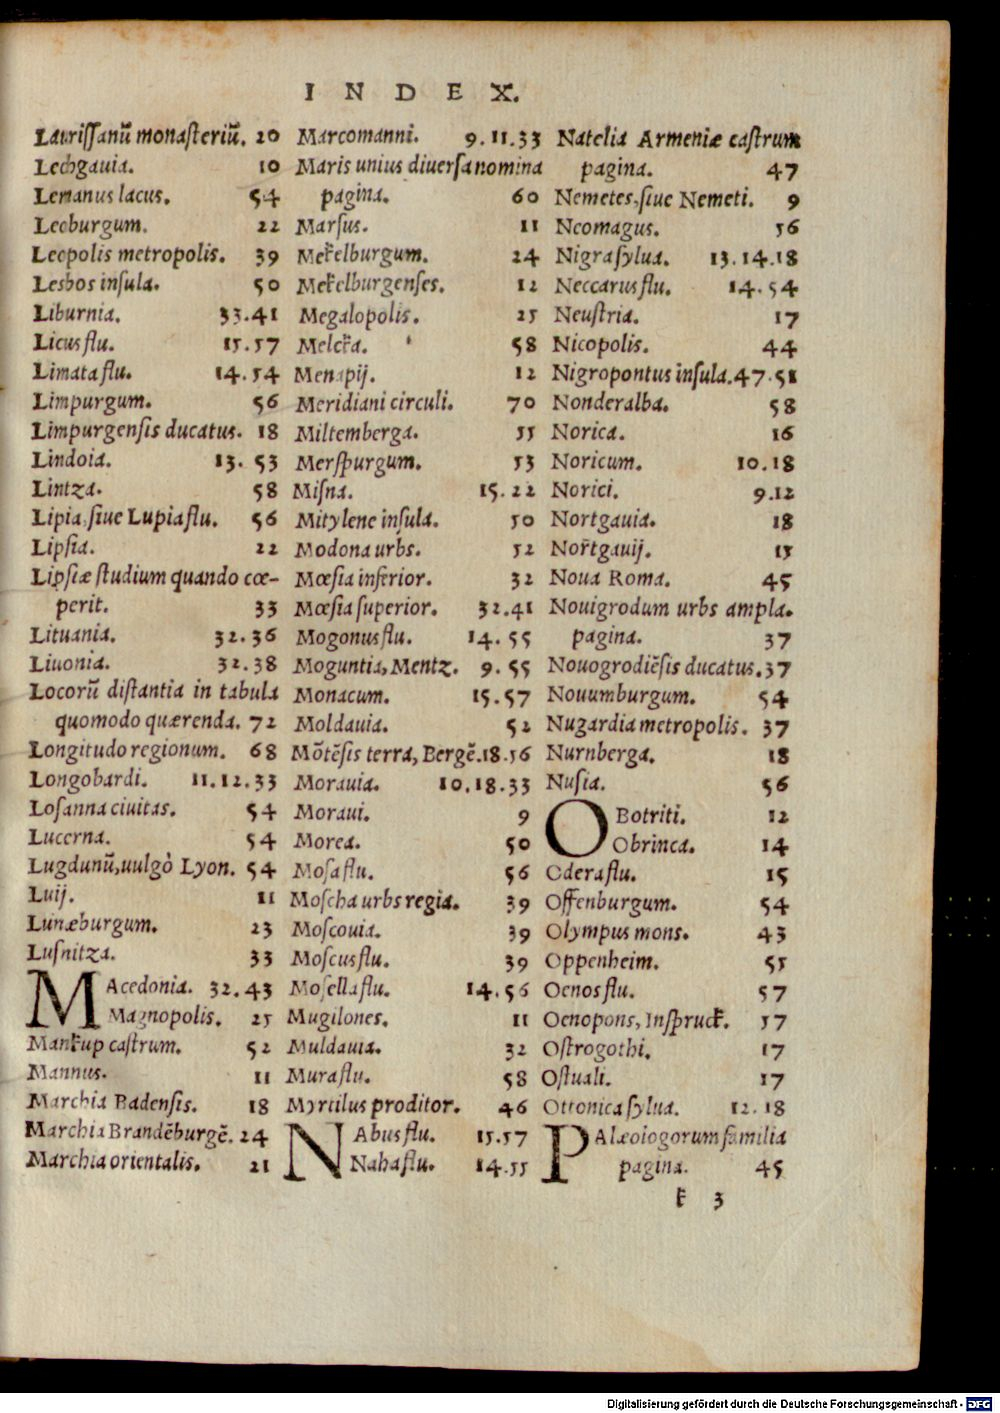 INDEX.
Laurissanū monasteriū. 20
Lechgauia. 10
Lemanus lacus. 54
Leoburgum. 22
Leopolis metropolis. 39
Lesbos insula. 50
Liburnia. 33.41
Licus flu. 15.57
Limata flu. 14.54
Limpurgum. 56
Limpurgensis ducatus. 18
Lindoia. 13. 53
Lintza. 58
Lipia, siue Lupia flu. 56
Lipsia. 22
Lipsiæ studium quando cœ-
perit. 33
Lituania. 32.36
Liuonia. 32.38
Locorū distantia in tabula
quomodo quærenda. 72
Longitudo regionum. 68
Longobardi. 11.12.33
Losanna ciuitas. 54
Lucerna. 54
Lugdunū, uulgò Lyon. 54
Luij. 11
Lunæburgum. 23
Lusnitza. 33
MAcedonia. 32.43
Magnopolis. 25
Mankup castrum. 52
Mannus. 11
Marchia Badensis. 18
Marchia Brandēburgē. 24
Marchia orientalis. 21
Marcomanni. 9.11.33
Maris unius diuersa nomina
pagina. 60
Marsus. 11
Mekelburgum. 24
Mekelburgenses. 12
Megalopolis. 25
Melcka. 58
Menapij. 12
Meridiani circuli. 70
Miltemberga. 55
Merspurgum. 53
Misna. 15.22
Mitylene insula. 50
Modona urbs. 52
Mœsia inferior. 32
Mœsia superior. 32.41
Mogonus flu. 14.55
Moguntia, Mentz. 9.55
Monacum. 15.57
Moldauia. 52
Mōtēsis terra, Bergē. 18.56
Morauia. 10.18.33
Moraui. 9
Morea. 50
Mosa flu. 56
Moscha urbs regia. 39
Moscouia. 39
Moscus flu. 39
Mosella flu. 14.56
Mugilones. 11
Muldauia. 32
Mura flu. 58
Myrtilus proditor. 46
NAbus flu. 15.57
Naha flu. 14.55
Natelia Armeniæ castrum
pagina. 47
Nemetes, siue Nemeti. 9
Neomagus. 56
Nigra sylua. 13.14.18
Neccarus flu. 14.54
Neustria. 17
Nicopolis. 44
Nigropontus insula. 47.51
Nonderalba. 58
Norica. 16
Noricum. 10.18
Norici. 9.12
Nortgauia. 18
Nortgauij. 15
Noua Roma. 45
Nouigrodum urbs ampla.
pagina. 37
Nouogrodiēsis ducatus. 37
Nouumburgum. 54
Nugardia metropolis. 37
Nurnberga. 18
Nusia. 56
OBotriti. 12
Obrinca. 14
Odera flu. 15
Offenburgum. 54
Olympus mons. 43
Oppenheim. 55
Oenos flu. 57
Oenopons, Inspruck. 57
Ostrogothi. 17
Ostuali. 17
Ottonica sylua. 12.18
PAlæologorum familia
pagina. 45
k 3
Digitalisierung gefördert durch die Deutsche Forschungsgemeinschaft - DFG